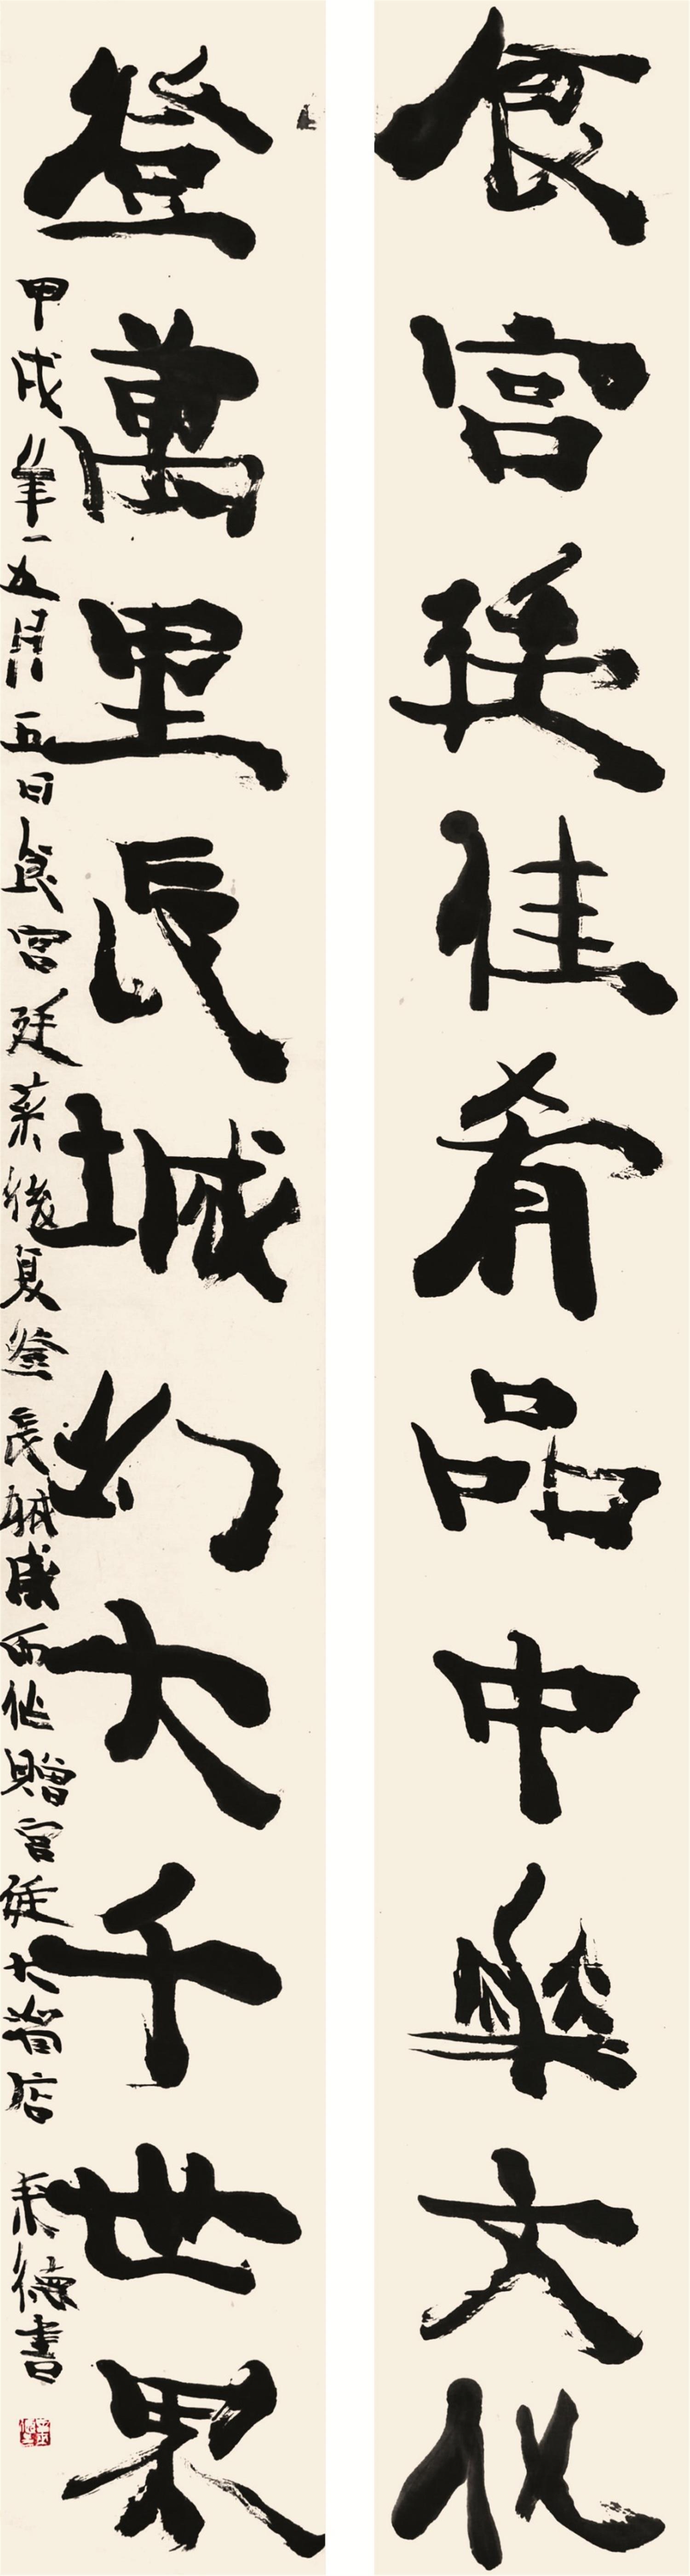 食宫廷佳肴品中華文化
登萬里長城幻大千世界
甲戌年五月五日食宫廷菜後复登長城感而作贈宫廷大店 德書